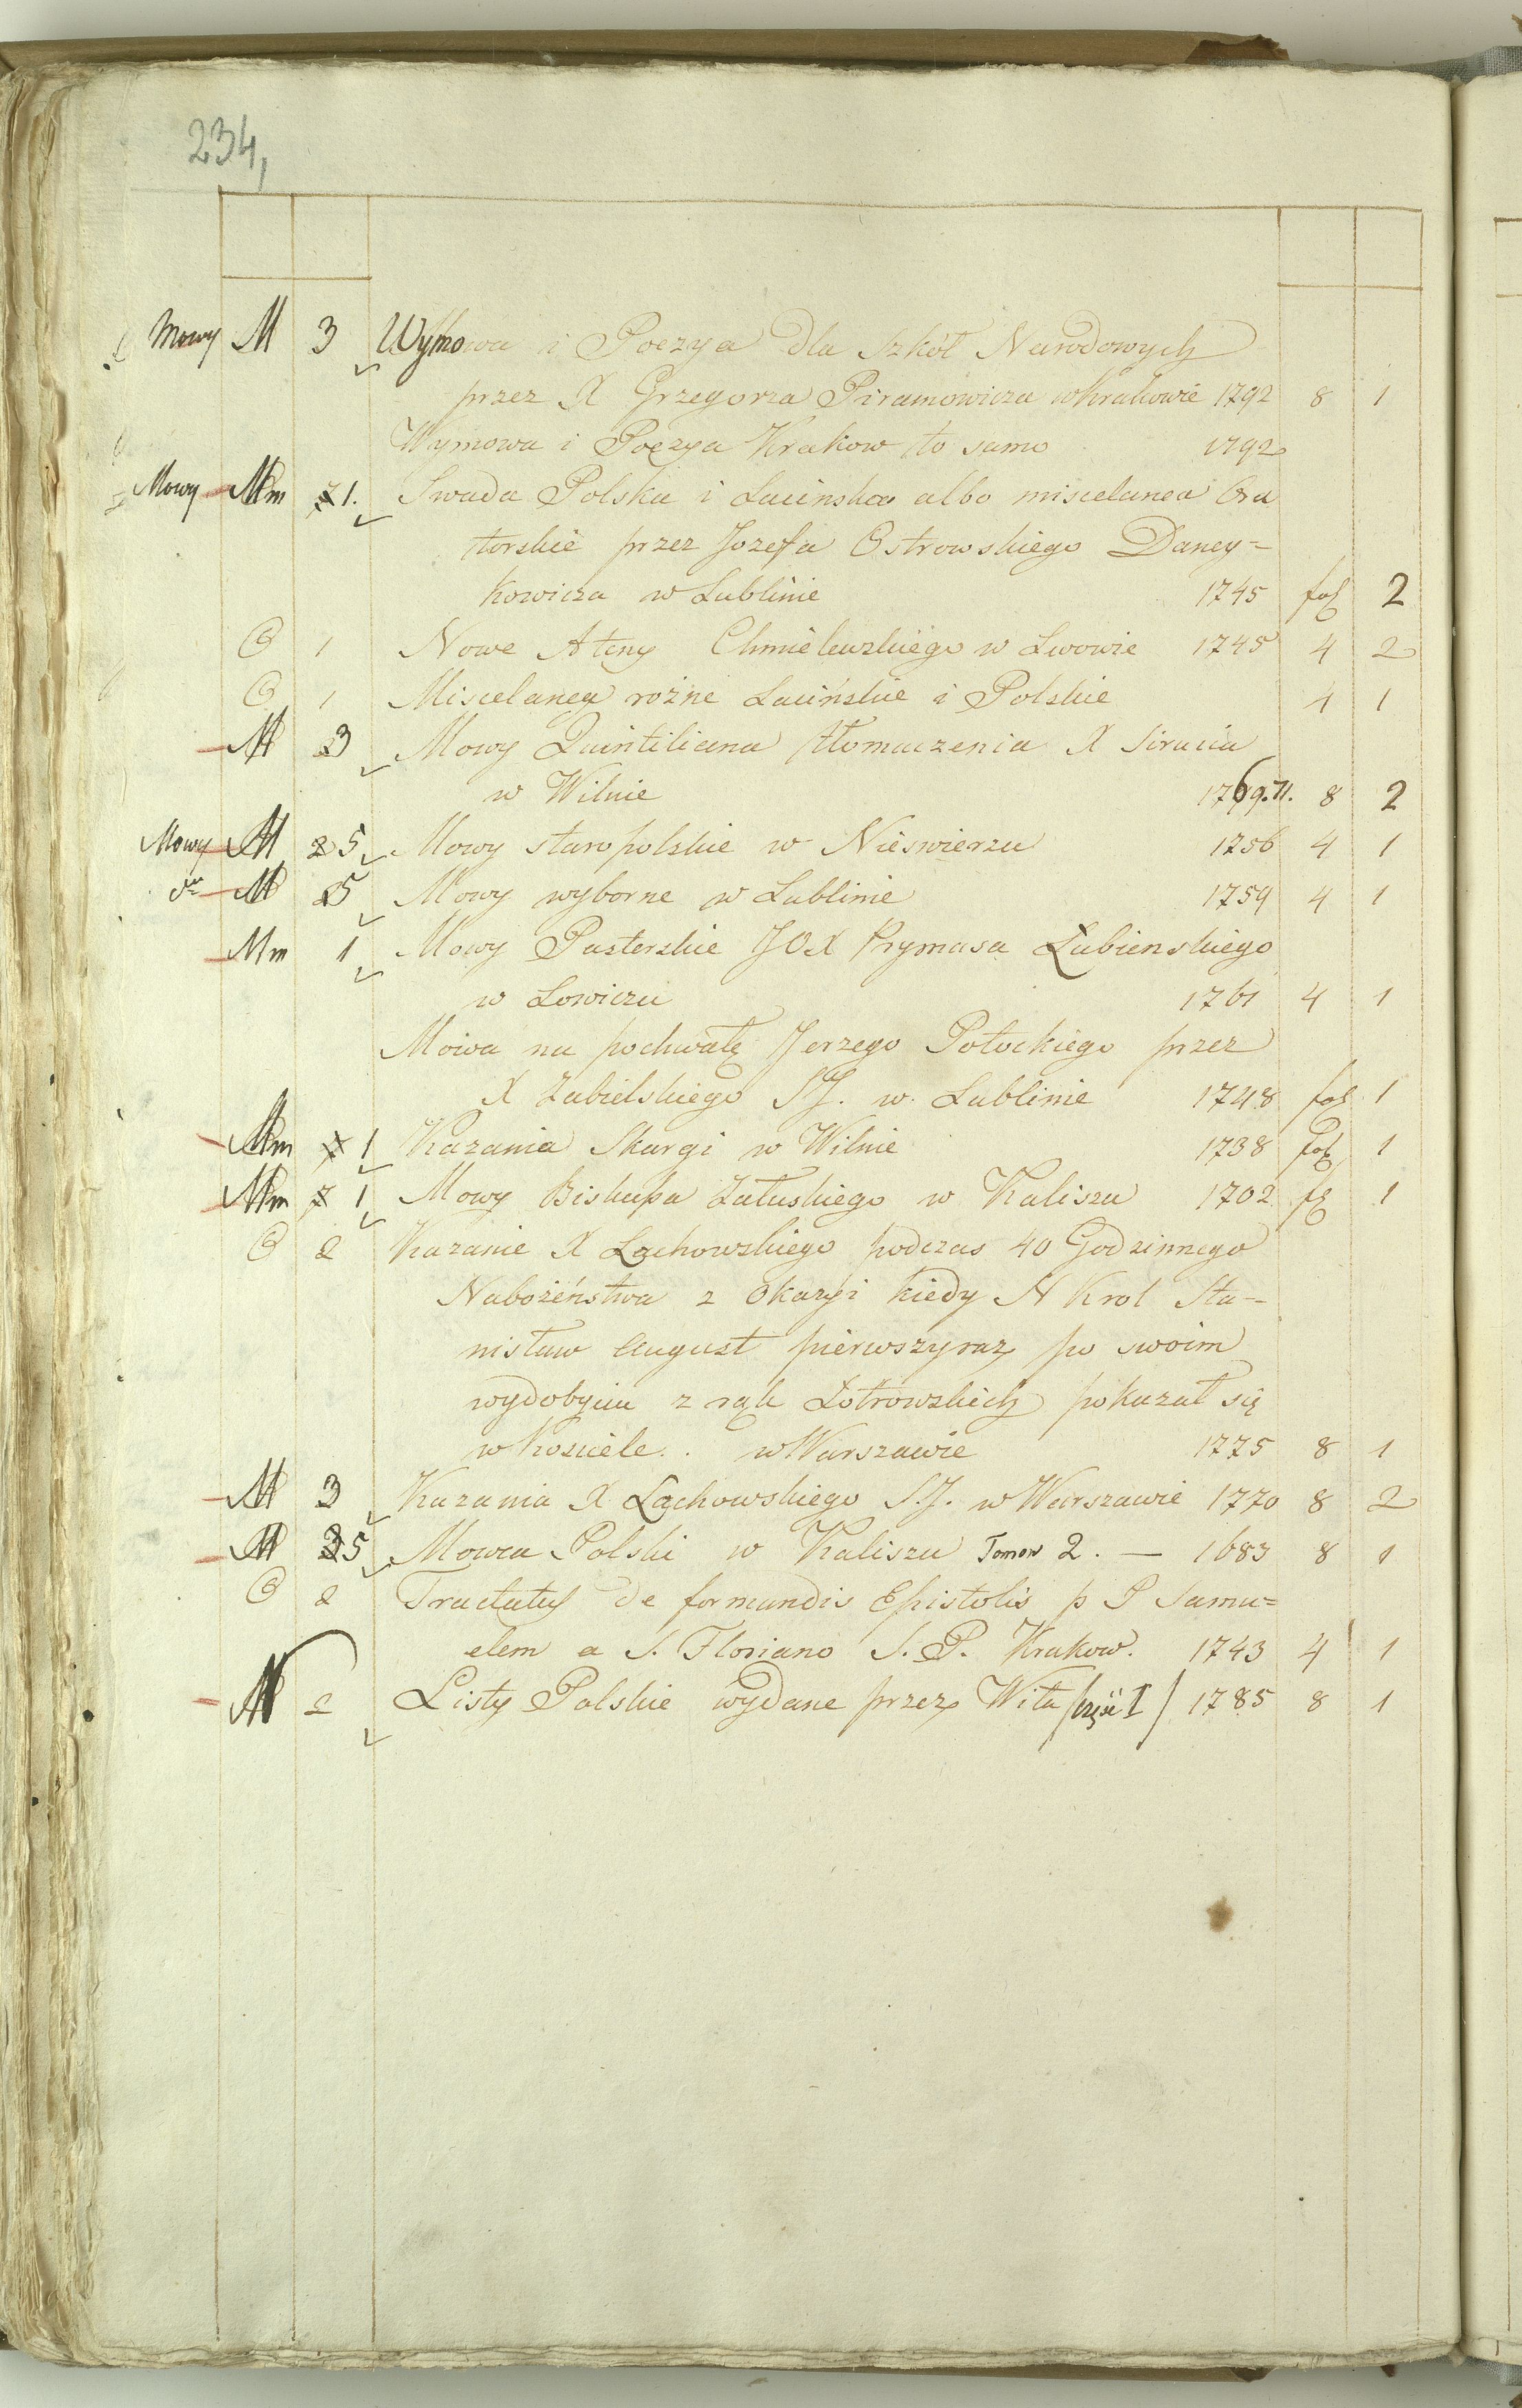 234,
Mowy M 3 Wymowa i Poezya dla Szkół Narodowych
przez X Grzegorza Piramowicza w Krakowie 1792 8 1
Wymowa i Poezya Krakow to samo 1792
Mowy Mm 1. Swada Polska i Lacinska albo miscelanea Ora
torskie przez Jozefa Ostrowskiego Daney=
kowicza w Lublinie 1745 fol 2
1 Nowe Ateny Chmielewskiego w Lwowie 1745 4 2
1 Miscelanea rożne Lacińskie i Polskie 4 1
M 3 Mowy Quintiliana tłomaczenia X Sirucia
w Wilnie 1769.71. 8 2
Mowy M 5 Mowy staropolskie w Nieswierzu 1756 4 1
M 5 Mowy wyborne w Lublinie 1759 4 1
Mm 1 Mowy Pasterskie JOX Prymasa Łubienskiego
w Lowiczu 1761 4 1
Mowa na pochwałę Jerzego Potockiego przez
X Zabielskiego SJ. w. Lublinie 1748 fol 1
Mm 1 Kazania Skargi w Wilnie 1738 fol 1
Mm 1 Mowy Biskupa Załuskiego w Kaliszu 1702 fol 1
2 Kazanie X Lachowskiego podczas 40 Godzinnego
Nabożeństwa z Okazyi kiedy N Krol Sta-
nisław August pierwszyraz po swoim
wydobyciu z rąk Łotrowskich pokazał się
w Kosciele.. w Warszawie 1775 8 1
M 3 Kazania X Lachowskiego S.J. w Warszawie 1770 8 2
M 5 Mowca Polski w Kaliszu Tomow 2. — 1683 8 1
2 Tractatus de formandis Epistolis p P Samu=
elem a S. Floriano S.P. Krakow. 1743 4 1
M 2 Listy Polskie wydane przez Wita /część I/ 1785 8 1